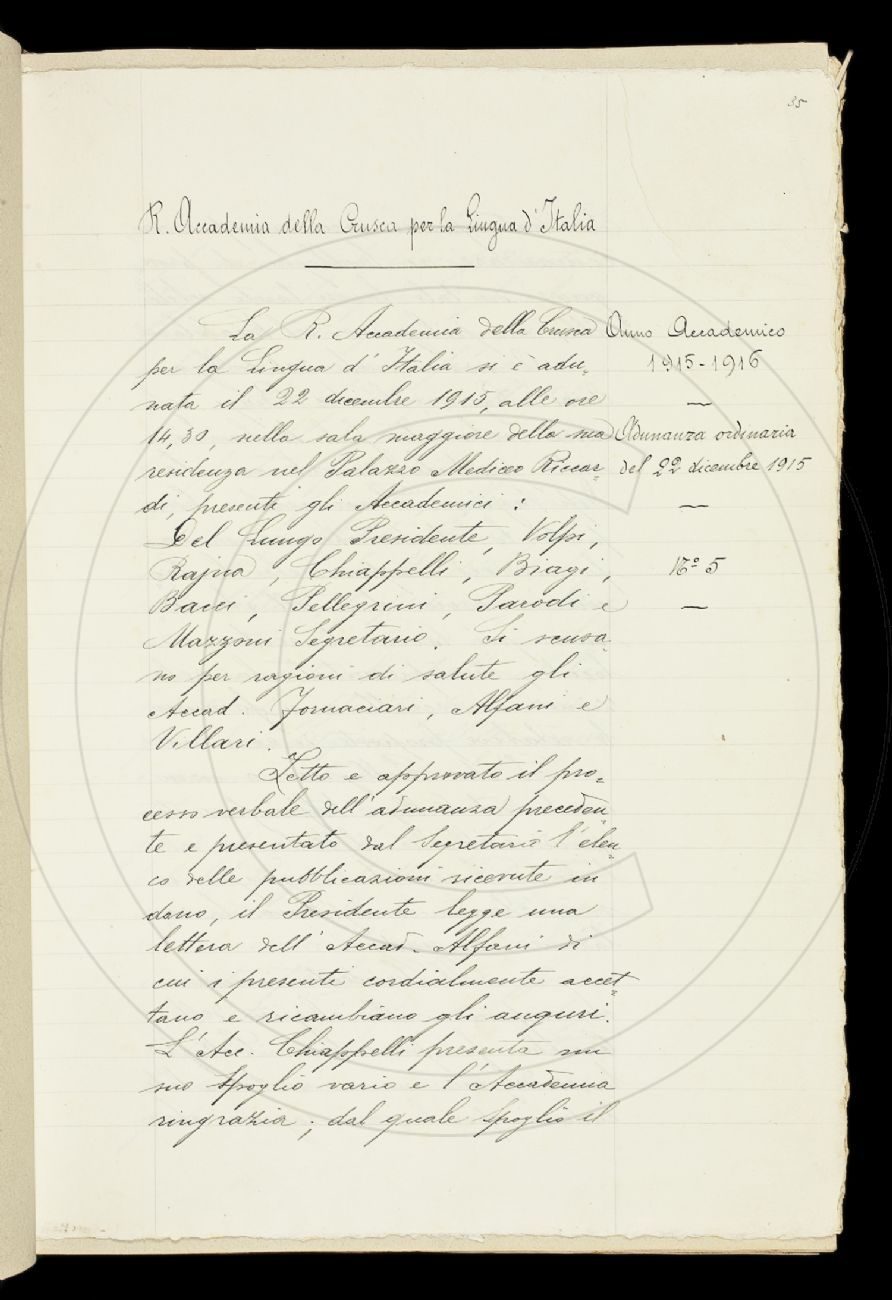 35
R. Accademia della Crusca per la Lingua d'Italia
La R. Accademia della Crusca
per la Lingua d'Italia si è adu=
nata il 22 dicembre 1915, alle ore
14,30, nella sala maggiore della sua
residenza nel Palazzo Mediceo Riccar=
di, presenti gli Accademici :
Del Lungo Presidente, Volpi,
Rajna, Chiappelli, Biagi,
Bacci, Pellegrini, Parodi e
Mazzoni Segretario. Si scusa=
no per ragioni di salute gli
Accad. Fornaciari, Alfani e
Villari.
Letto e approvato il pro=
cesso verbale dell'adunanza preceden=
te e presentato dal Segretario l'elen=
co delle pubblicazioni ricevute in
dono, il Presidente legge una
lettera dell'Accad. Alfani di
cui i presenti cordialmente accet=
tano e ricambiano gli auguri.
L'Acc. Chiappelli presenta un
suo spoglio vario e l'Accademia
ringrazia ; dal quale spoglio il
Anno Accademico
1915-1916
—
Adunanza ordinaria
del 22 dicembre 1915
—
N.º 5
—